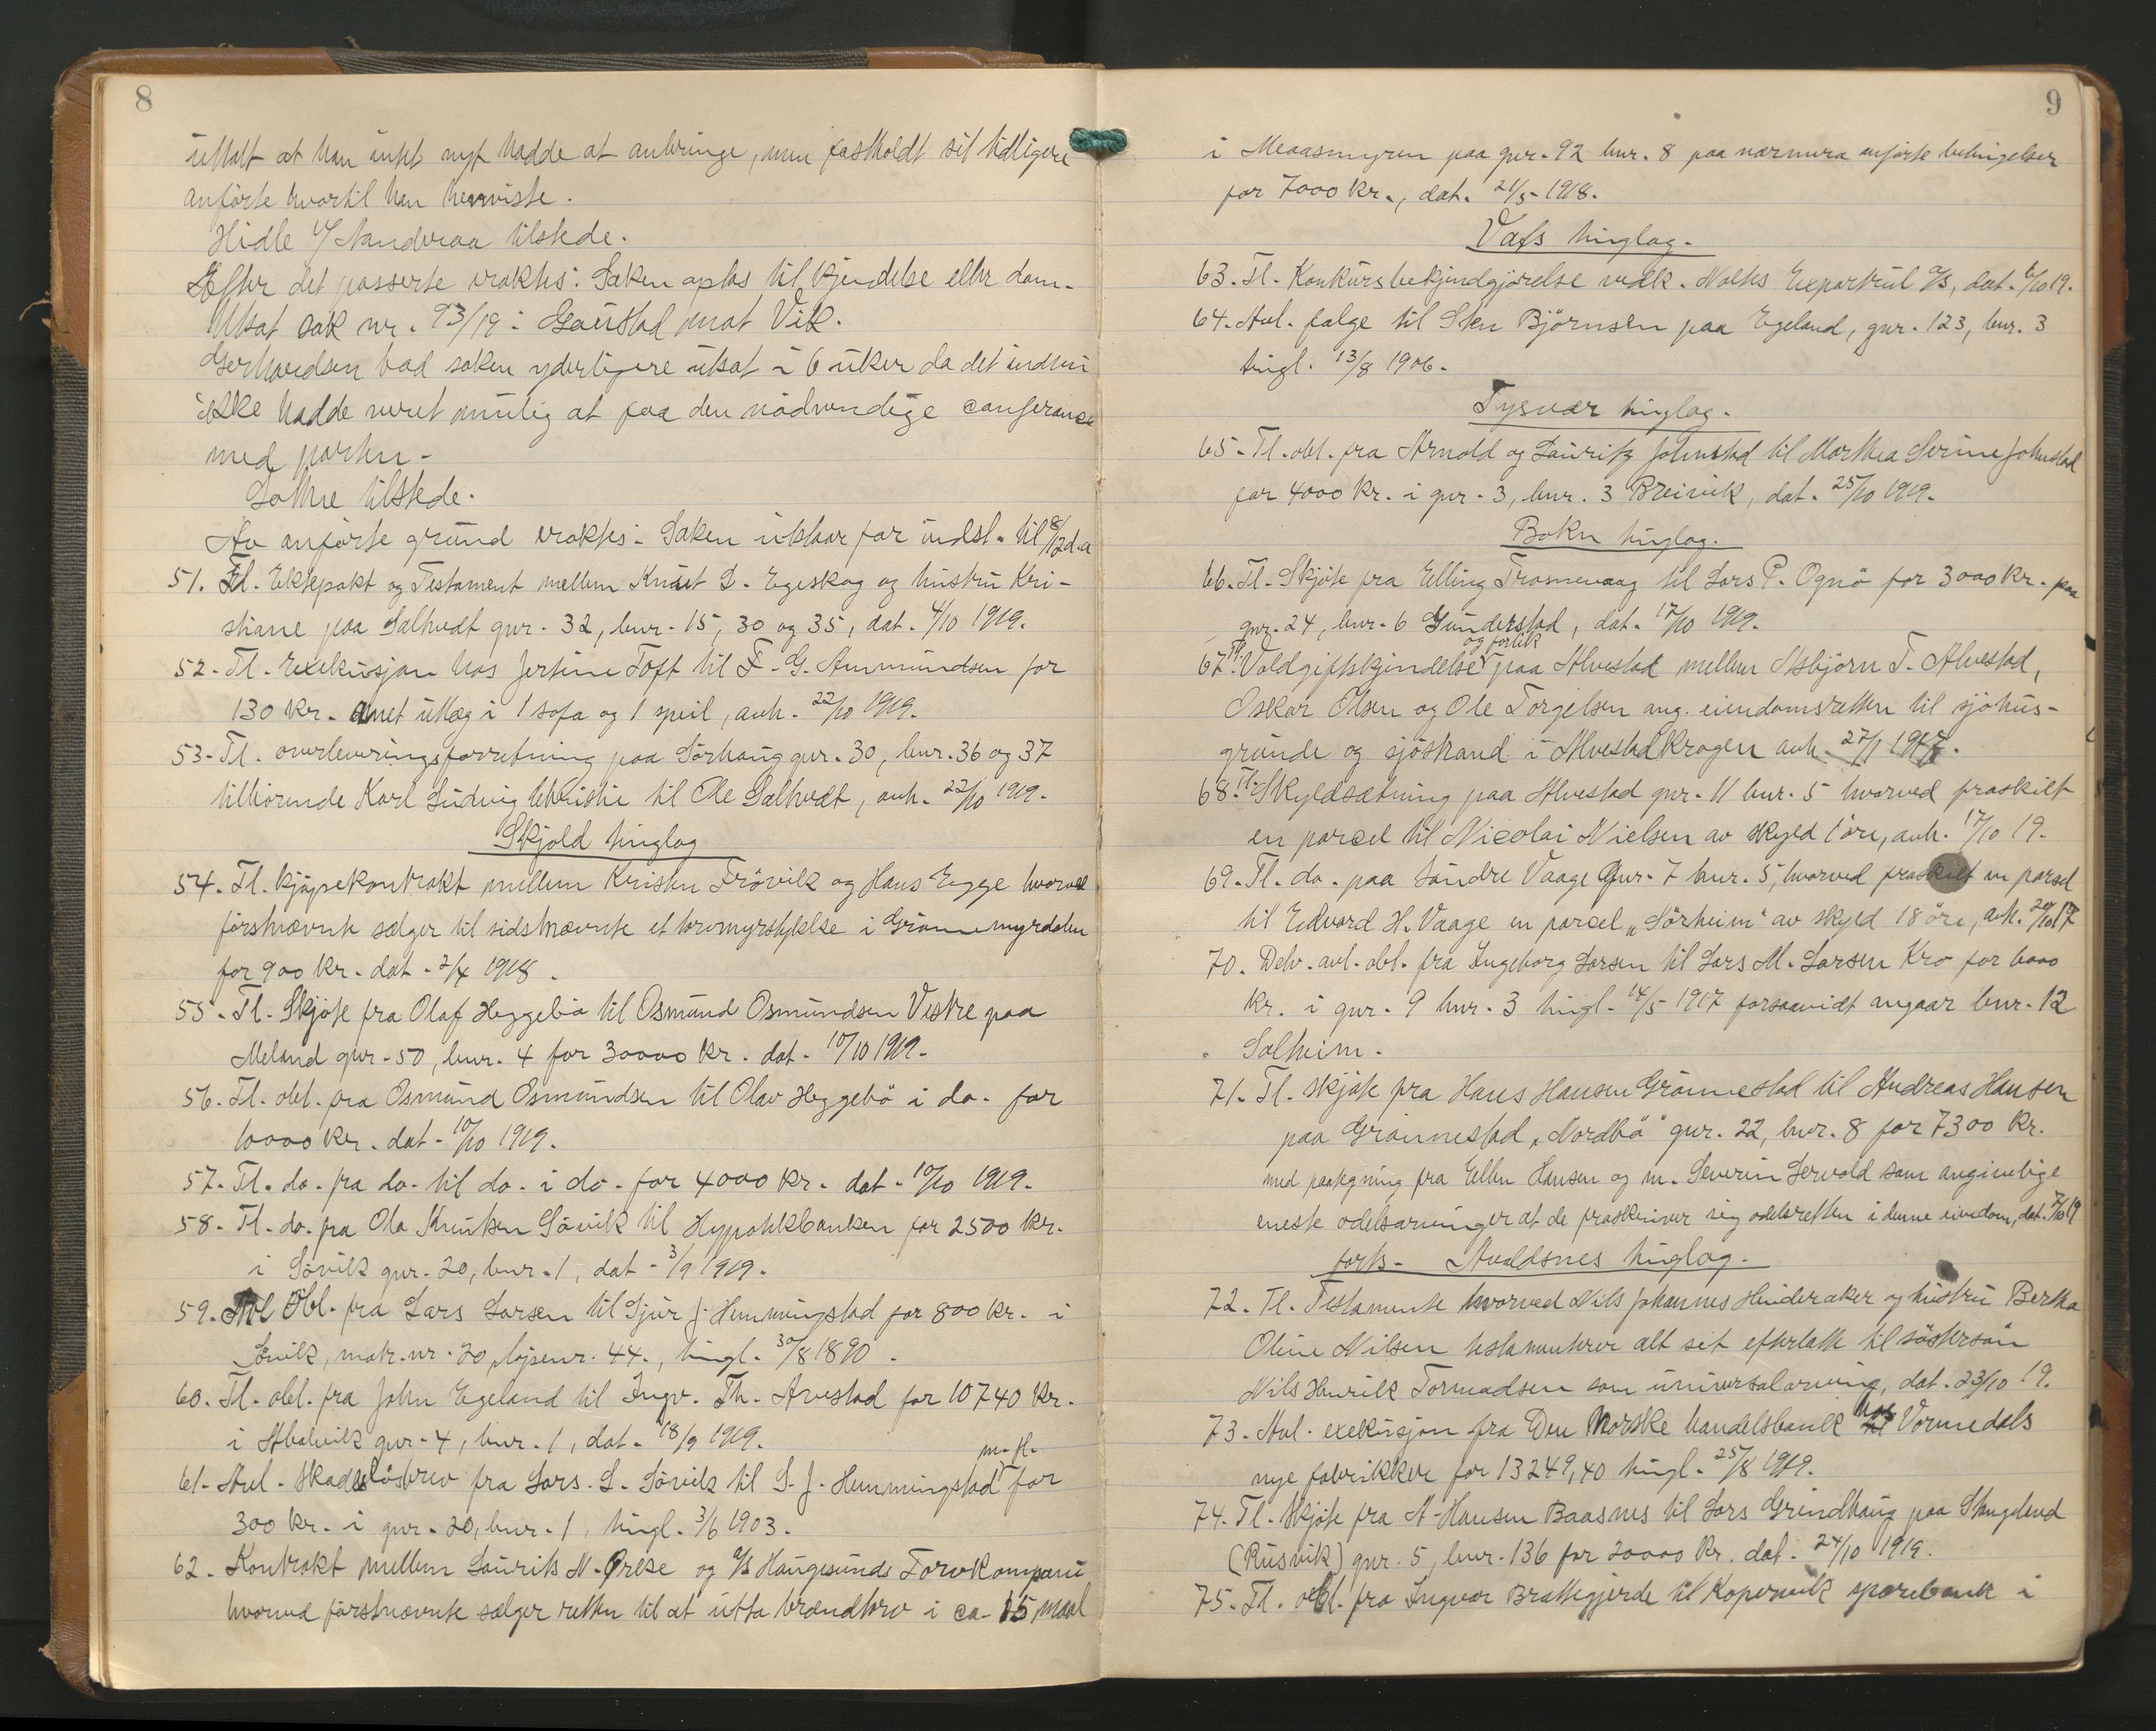 8
uttalt at han intet nyt hadde at anbringe, men fastholdt sit tidligere
anförte hvortil han henviste.
Hidle f/ Nandvraa tilstede.
Efter det passerte vraktes: Saken optas til kjendelse eller dom.
Utsat sak nr. 93/19: Gaustad mot Vik.
Gerhardsen bad saken yderligere utsat i 6 uker da det endnu
ikke hadde været mulig at faa den nödvendige conferance
med parten.
Sothe tilstede.
Av anförte grund vraktes: Saken utstaar for indst. til 8/12 d.a
51. Tl. Ektepakt og Testament mellem Knut L. Egeskog og hustru Kri-
stiane paa Salhvedt gnr. 32, bnr. 15, 30 og 35, dat. 4/10 1919.
52. Tl. Exekusjon hos Jertine Toft til F. G. Ammundsen for
130 kr. anet utlæg i 1 sofa og 1 speil, avh. 22/10 1919.
53. Tl. overleveringsforretning paa Sörhaug gnr. 30, bnr. 36 og 37
tilhörende Karl Ludvig Christie til Ole Salhvedt, avh. 22/10 1919.
Skjold tinglag
54. Tl. kjöpekontrakt mellem Kristen Frövik og Hans Eegge hvorved
förstnævnte sælger til sidstnævnte et torvmyrstykke i Grönnemyrdalen
for 900 kr. dat. 2/4 1918.
55. Tl. Skjöte fra Olaf Heggebö til Osmund Osmundsen Vestre paa
Meland gnr. 50, bnr. 4 for 30000 kr. dat. 10/10 1919.
56. Tl. obl. fra Osmund Osmundsen til Olav Heggebö i do. for
10000 kr. dat. 10/10 1919.
57. Tl. do. fra do. til do. i do. for 4000 kr. dat. 10/10 1919.
58. Tl. do. fra Ola Knutsen Sövik til Hypotekbanken for 2500 kr.
i Sövik gnr. 20, bnr. 1, dat. 3/9 1919.
59. Avl Obl. fra Lars Larsen til Sjur J. Hemmingstad for 800 kr. i
Sövik, matr. nr. 20, löpenr. 44., tingl. 30/8 1890.
60. Tl. obl. fra John Egeland til Ingv. Th. Arestad for 10740 kr.
i Abalvik gnr. 4, bnr. 1, dat. 18/9 1919.
m. fl.
61. Avl. Skadeslösbrev fra Lars. L. Sövik til S. J. Hemmingstad for
300 kr. i gnr. 20, bnr. 1, tingl. 3/6 1903.
62. Kontrakt mellem Laurits N. Örke og a/s Haugesunds Torvkompani
hvorved förstnævnte sælger retten til at utta brændtorv i ca. 15 maal
9
i Meaasmyren paa gnr. 92 bnr. 8 paa nærmere anförte betingelser
for 7000 kr., dat. 21/5 1918.
Vats tinglag.
63. Tl. Konkursbekjendgjörelse vedk. Noltes Exportrul a/s, dat. 6/10 19.
64. Avl. fölge til Sten Björnsen paa Egeland, gnr. 123, bnr. 3
tingl. 13/8 1906.
Tysvær tinglag.
65. Tl. obl. fra Arnold og Lauritz Johnstad til Marthea Serine Johnstad
for 4000 kr. i gnr. 3, bnr. 3 Breivik, dat. 25/10 1919.
Bokn tinglag.
66. Tl. Skjöte fra Elling Trosnevaag til Lars P. Ognö for 3000 kr. paa
gnr. 24, bnr. 6 Gunderstad, dat. 17/10 1919.
67. Tl. Voldgiftskjendelse og forlik paa Alvestad mellem Asbjörn T. Alvestad,
Oskar Olsen og Ole Torgelsen ang. eiendomsretten til sjöhus-
grunde og sjöstrand i Alvestadkrogen avh. 27/1 1917.
68. Tl. Skyldsætning paa Alvestad gnr. 11 bnr. 5 hvorved fraskilt
en parcel til Nicolai Nielsen av skyld 1 öre, avh. 17/10 19.
69. Tl. do. paa Söndre Vaage gnr. 7 bnr. 5, hvorved fraskilt en parsel
til Edvard H. Vaage en parcel „Sörheim" av skyld 18 öre, avh. 20/10 17
70. Delv. avl. obl. fra Ingeborg Larsen til Lars M. Larsen Kro for 6000
kr. i gnr. 9 bnr. 3 tingl. 14/5 1917 forsaavidt angaar bnr. 12
Solheim.
71. Tl. skjöte fra Hans Hansen Grönnestad til Andreas Hansen
paa Grönnestad „Nordbö" gnr. 22, bnr. 8 for 7300 kr.
med paategning fra Ellen Hansen og m. Severin Servold som angivelige
eneste odelsarvinger at de fraskriver sig odelsretten i denne eiendom, dat. 7/10 19
forts. Avaldsnes tinglag.
72. Tl. Testamente hvorved Nils Johannes Hinderaker og hustru Bertha
Oline Nilsen testamenterer alt sit efterlatte til söstersön
Nils Henrik Tormodsen som universalarving, dat. 23/10 19.
73. Avl. exekusjon fra Den Norske handelsbank hos Vormedals
nye fabrikker for 13249,40 tingl. 25/8 1919.
74. Tl. Skjöte fra A. Hansen Baasnes til Lars Grindhaug paa Stangeland
(Rusvik) gnr. 5, bnr. 136 for 20000 kr. dat. 24/10 1919.
75. Tl. obl. fra Ingvar Brattegjerde til Kopervik sparebank i